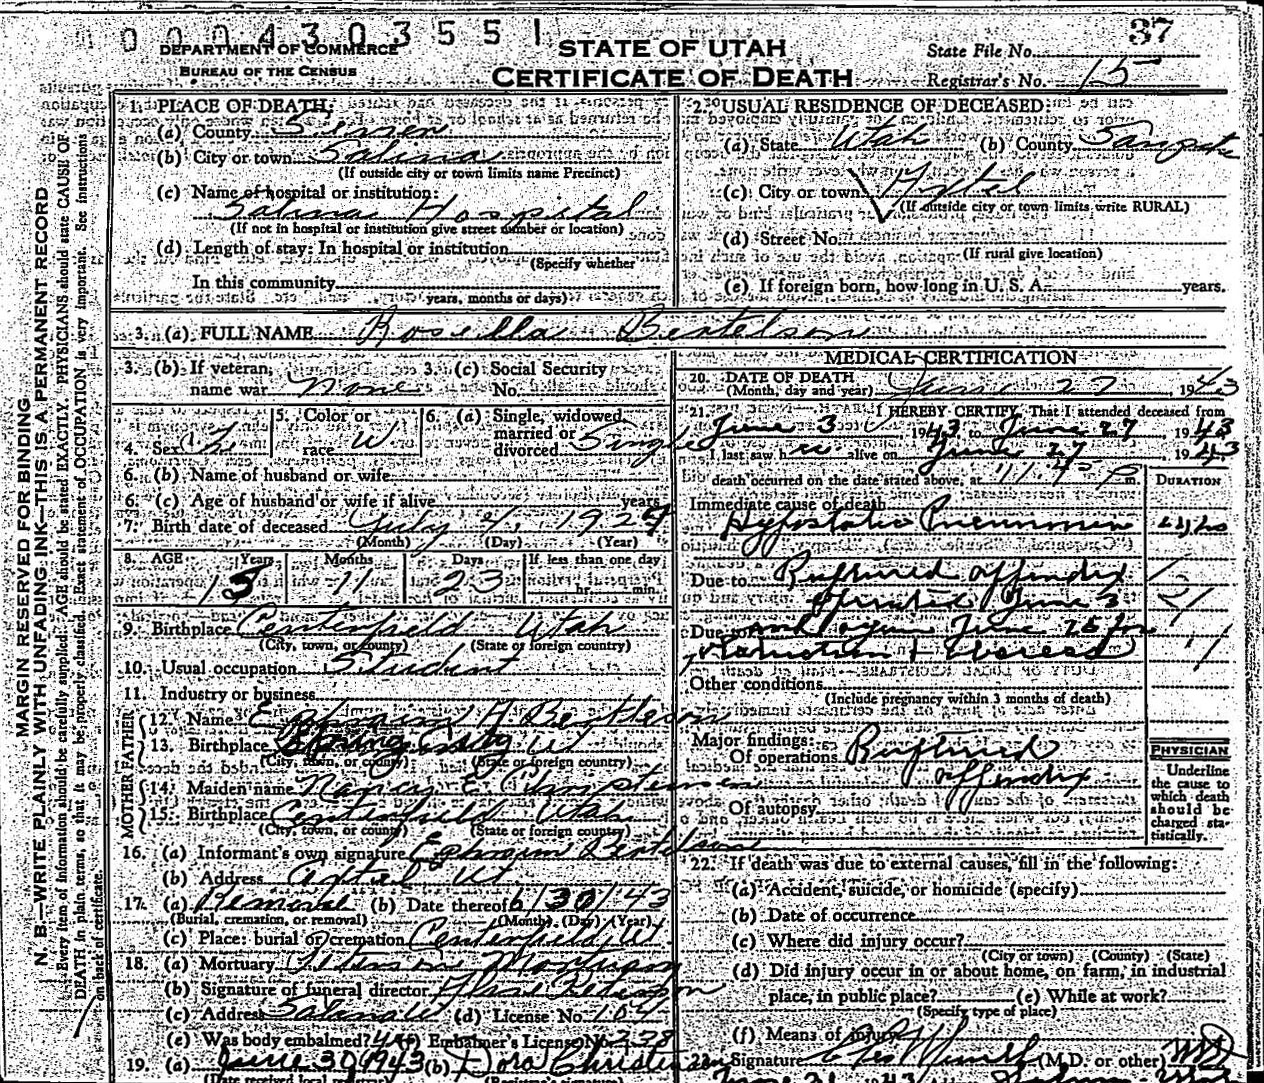 0004303551
37
DEPARTMENT OF COMMERCE
BUREAU OF THE CENSUS
STATE OF UTAH
CERTIFICATE OF DEATH
State File No.
Registrar's No. 15
MARGIN RESERVED FOR BINDING
N. B.—WRITE PLAINLY WITH UNFADING INK—THIS IS A PERMANENT RECORD
Every item of information should be carefully supplied. AGE should be stated EXACTLY. PHYSICIANS should state CAUSE OF
DEATH in plain terms, so that it may be properly classified. Exact statement of OCCUPATION is very important. See instructions
on back of certificate.
1. PLACE OF DEATH:
(a) County Sevier
(b) City or town Salina
(If outside city or town limits name Precinct)
(c) Name of hospital or institution:
Salina Hospital
(If not in hospital or institution give street number or location)
(d) Length of stay: In hospital or institution
(Specify whether
In this community
years, months or days)
2. USUAL RESIDENCE OF DECEASED:
(a) State Utah (b) County Sanpete
(c) City or town Axtel
(If outside city or town limits write RURAL)
(d) Street No.
(If rural give location)
(e) If foreign born, how long in U. S. A. years.
3. (a) FULL NAME Rosella Bertelson
3. (b) If veteran, name war None 3. (c) Social Security No.
4. Sex Fe 5. Color or race W 6. (a) Single, widowed married or divorced Single
6. (b) Name of husband or wife
6. (c) Age of husband or wife if alive years
7. Birth date of deceased July 4, 1927
(Month) (Day) (Year)
8. AGE Years Months Days If less than one day
15 11 23 hr. min.
9. Birthplace Centerfield Utah
(City, town, or county) (State or foreign country)
10. Usual occupation Student
11. Industry or business
FATHER
12. Name Ephraim H Bertleson
13. Birthplace Spring City Ut
(City, town, or county) (State or foreign country)
MOTHER
14. Maiden name Nancy E
15. Birthplace Centerfield Utah
(City, town, or county) (State or foreign country)
16. (a) Informant's own signature Ephraim Bertelson
(b) Address Axtel Ut
17. (a) Removal (b) Date thereof 6/30/43
(Burial, cremation, or removal) (Month) (Day) (Year)
(c) Place: burial or cremation Centerfield Ut.
18. (a) Mortuary Peterson Mortuary
(b) Signature of funeral director Peterson
(c) Address Salina Ut (d) License No. 104
(e) Was body embalmed? (f) Embalmer's License No. 338
19. (a) June 30 1943 (b) Dora Christensen
(Date received local registrar) (Registrar's signature)
MEDICAL CERTIFICATION
20. DATE OF DEATH
(Month, day and year) June 27, 1943
21. I HEREBY CERTIFY, That I attended deceased from
June 3, 1943, to June 27, 1943
I last saw her alive on June 27, 1943
death occurred on the date stated above, at 11.45 p m. DURATION
Immediate cause of death
Hypostatic Pneumonia
Due to Ruptured appendix
operated June 3 21
Due to and again June 25 for
obstruction +
Other conditions
(Include pregnancy within 3 months of death)
Major findings:
Of operations Ruptured
appendix
Of autopsy
PHYSICIAN
Underline
the cause to
which death
should be
charged sta-
tistically.
22. If death was due to external causes, fill in the following:
(a) Accident, suicide, or homicide (specify)
(b) Date of occurrence
(c) Where did injury occur?
(City or town) (County) (State)
(d) Did injury occur in or about home, on farm, in industrial
place, in public place? (e) While at work?
(Specify type of place)
(f) Means of injury
23. Signature (M.D. or other) MD